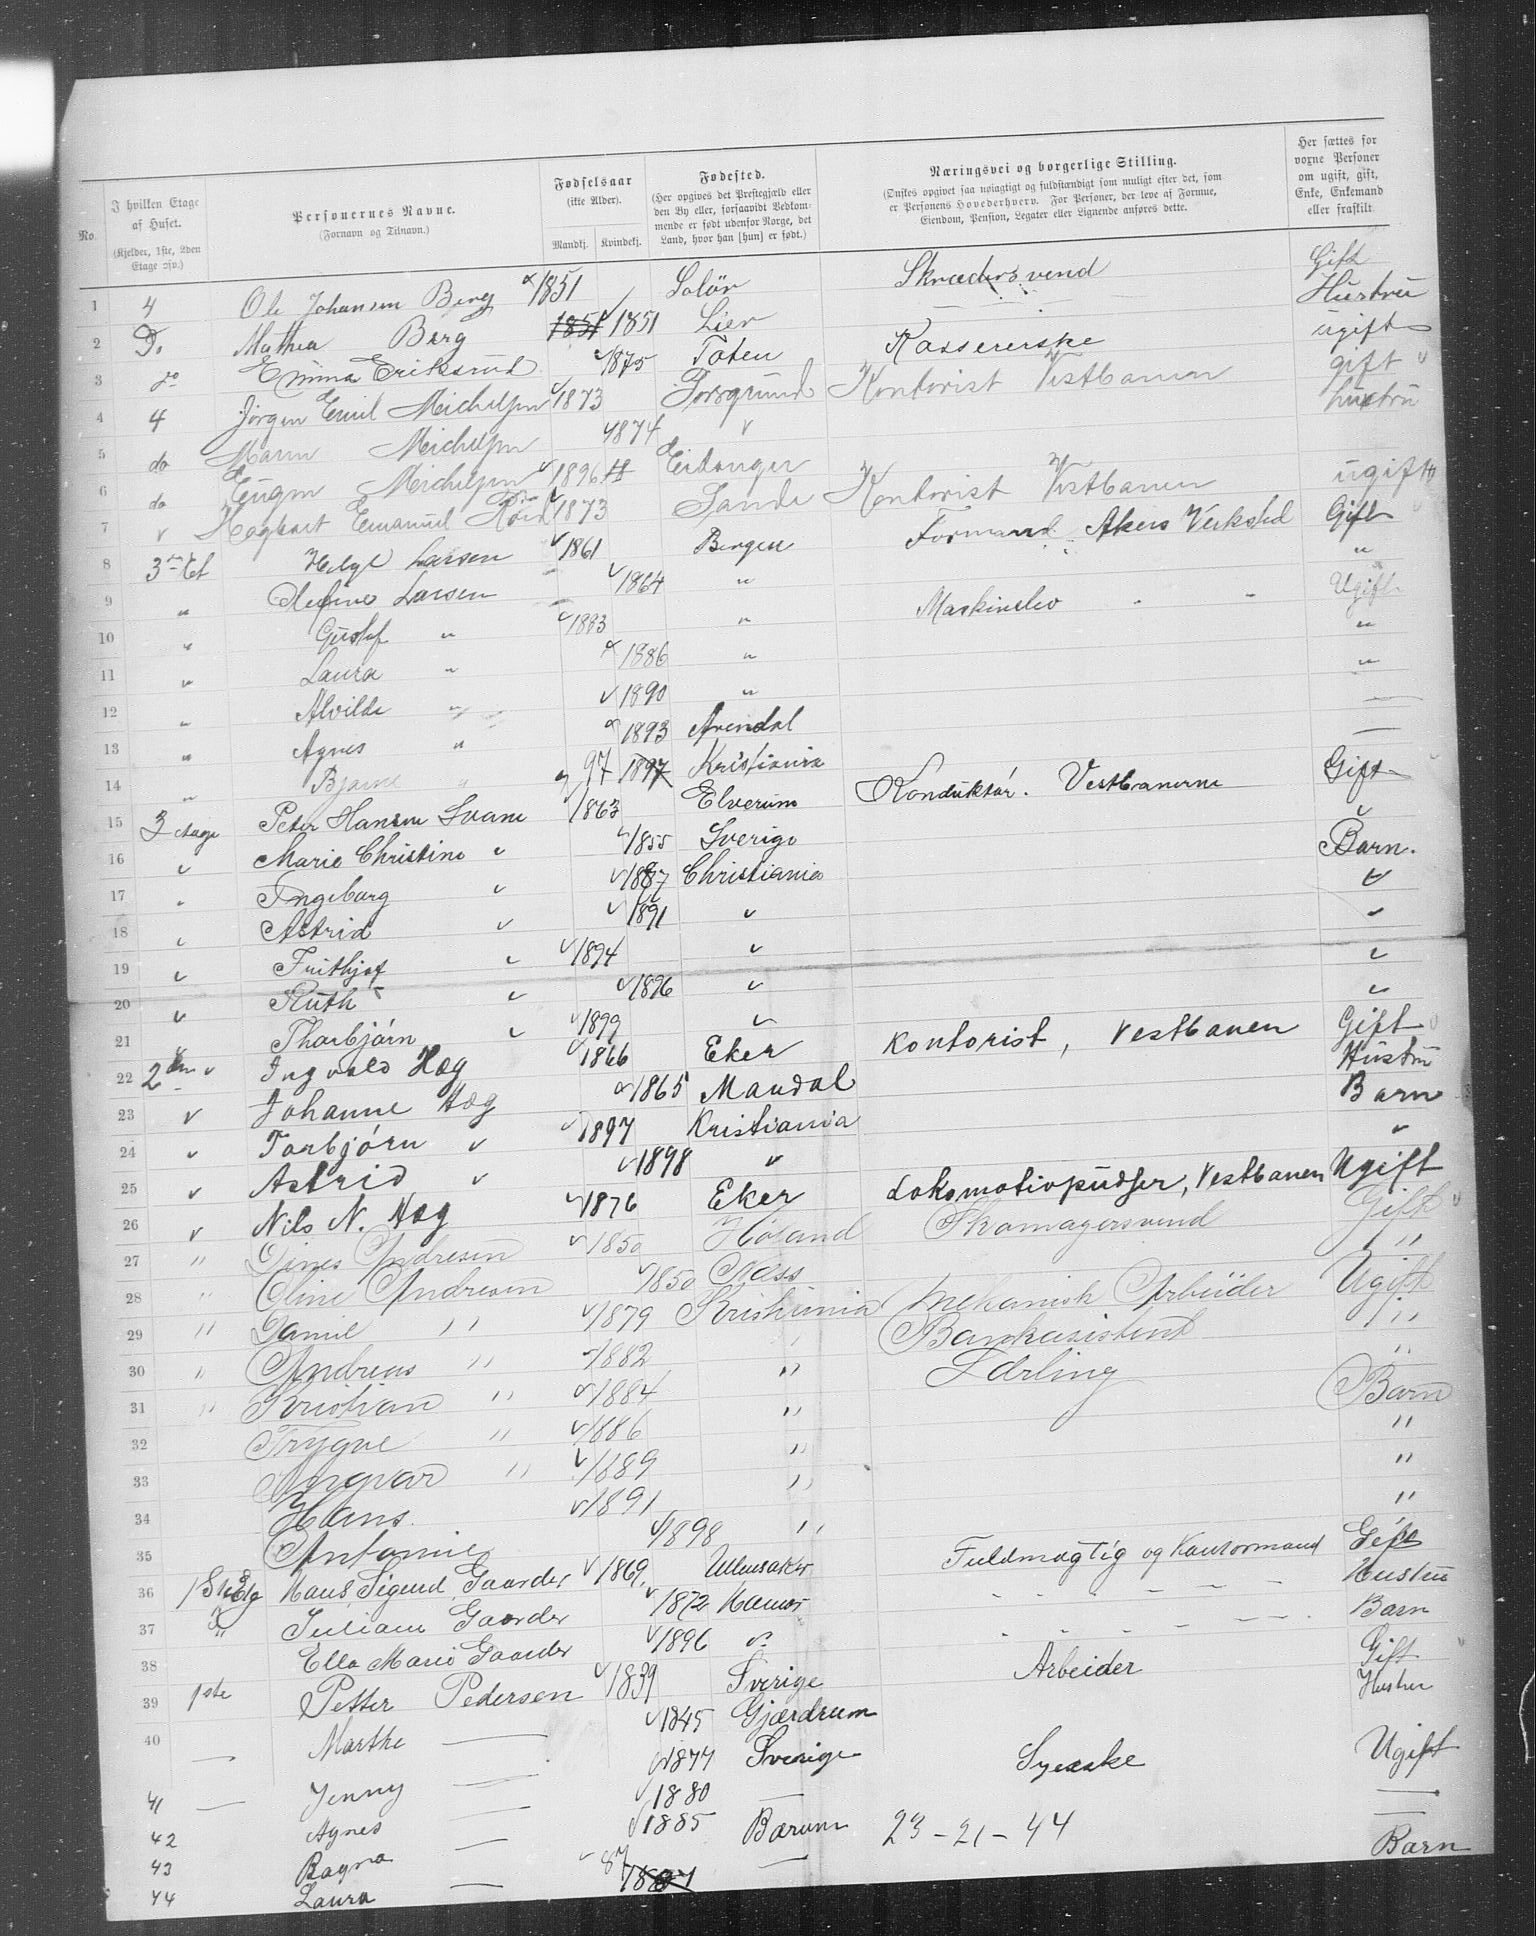 No. | I hvilken Etage af Huset. (Kjelder, 1ste, 2den Etage osv.) | Personernes Navne. (Fornavn og Tilnavn.) | Fødselsaar (ikke Alder). Mandkj. Kvindekj. | Fødested. (Her opgives det Prestegjæld eller den By eller, forsaavidt Vedkommende er født udenfor Norge, det Land, hvor han [hun] er født.) | Næringsvei og borgerlige Stilling. (Ønskes opgivet saa nøiagtigt og fuldstændigt som muligt efter det, som er Personens Hovederhverv. For Personer, der leve af Formue, Eiendom, Pension, Legater eller Lignende anføres dette. | Her sættes for vorne Personer om ugift, gift, Enke, Enkemand eller fraskilt.
1 4 Ole Johansen Berg 1851 Solør Skræddersvend Gift
2 Do Mathea Berg 1851 1851 Lier Hustru
3 do Emma Eriksrud 1875 Toten Kassererske ugift
4 4 Jørgen Emil Michelsen 1873 Porsgrund Kontorist Vestbanen gift
5 do Maren Michelsen 1874 " hustru
6 do Eugen Michelsen 1896 Eidanger
7 " Hagbart Emanuel 1873 Sande Kontorist Vestbanen ugift
8 3die Et Helge Larsen 1861 Bergen Formand Akers Verksted Gift
9 " Larsen 1864 " "
10 " Gustaf " 1883 " Maskinelev " " Ugift
11 " Laura " 1886 " "
12 " Alvilde " 1890 " "
13 " Agnes " 1893 Arendal —
14 " Bjarne " 97 1897 Kristiania —
15 3 etage Peter Hansen Svane 1863 Elverum Konduktør. Vestbanerne Gift
16 " Marie Christine " 1855 Sverige "
17 " Ingeborg " 1887 Christiania Barn.
18 " Astrid " 1891 " "
19 " Frithjof " 1894 " "
20 " Ruth " 1896 " "
21 " Thorbjørn " 1899 " "
22 2den " Ingvald Hæg 1866 Eker Kontorist, Vestbanen Gift
23 " Johanne Hæg 1865 Mandal Hustru
24 " Torbjørn " 1897 Kristiania Barn
25 " Astrid " 1898 " "
26 " Nils N. Hæg 1876 Eker Lokomotivpudser, Vestbanen Ugift
27 " Dines Andresen 1850 Høland Skomagersvend Gift
28 " Oline Andresen 1850 Næss "
29 " Daniel " 1879 Kristiania Mekanisk Arbeider Ugift
30 " Andreas " 1882 " Bankasistent "
31 " Kristian " 1884 " Lærling "
32 Trygve " 1886 " Barn
33 Ingvar " 1889 " "
34 Hans 1891 " "
35 Antonie 1898 " "
36 1ste Etg Hans Sigurd Gaarder 1869. Ullensaker Fuldmægtig og Kontormand Gift
37 " Juliane Gaarder 1872 Hamar Hustru
38 Ella Marie Gaarder 1896 do Barn
39 1ste Petter Pedersen 1839 Sverige Arbeider Gift
40 — Marthe — 1845 Gjærdrum Hustru
41 — Jenny — 1877 Sverige Syerske Ugift
42 Agnes — 1880 — —
43 Ragna — 1885 Bærum 23-21-44 —
44 Laura — 87 1887 — Barn